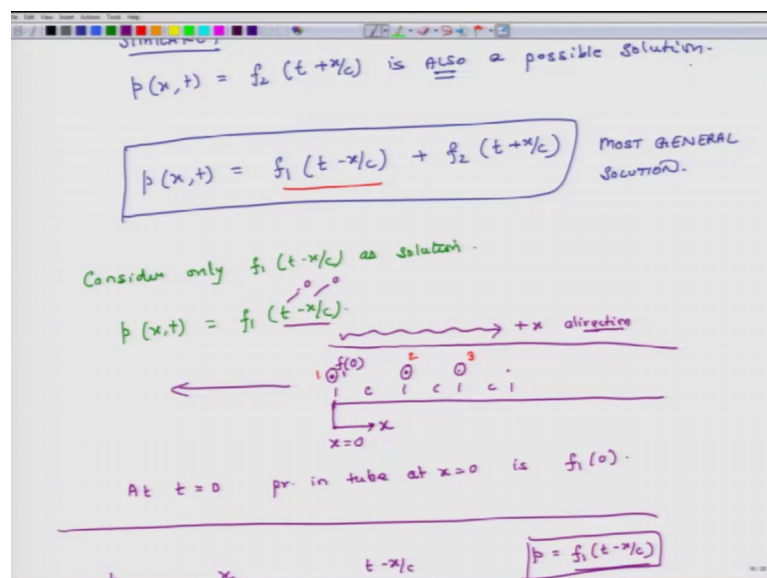 Edit View Insert Actions Tools Help
SIMILARLY
p(x,t) = f₂ (t + x/c) is ALSO a possible solution.
p(x,t) = f₁ (t - x/c) + f₂ (t + x/c)
MOST GENERAL
SOLUTION.
Consider only f₁ (t - x/c) as solution.
0 0
p(x,t) = f₁ (t - x/c).
+x direction
1 f₁(0) 2 3
c c c
x
x=0
At t=0 pr. in tube at x=0 is f₁(0).
t x t - x/c p = f₁(t - x/c)